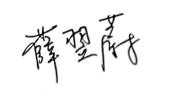 薛翌蔚